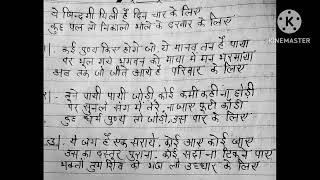 ये जिन्दगी मिली है दिन चार के लिए
कुछ पल तो निकालो भोले के दरबार के लिए
KINEMASTER
कई पुण्य किए होगें जो ये मानव तन है पाया
पर भूल गये भगवन को माया में मन भरमाया
अब तक तो जीते आये हैं परिवार के लिए
2) तूने पाई पाई जोड़ी कोई कमी कही ना छोड़ी
पर सुनले संग में तेरे ना जाए फूटी कौड़ी
कुछ पुण्य तो जोड़ो उस पार के लिए
3) ये जग है एक सराये कोई आए कोई जाए
उस का दस्तूर पुराना कोई सदा ना टिकने पाए
तुम शिव को भज लो उद्धार के लिए